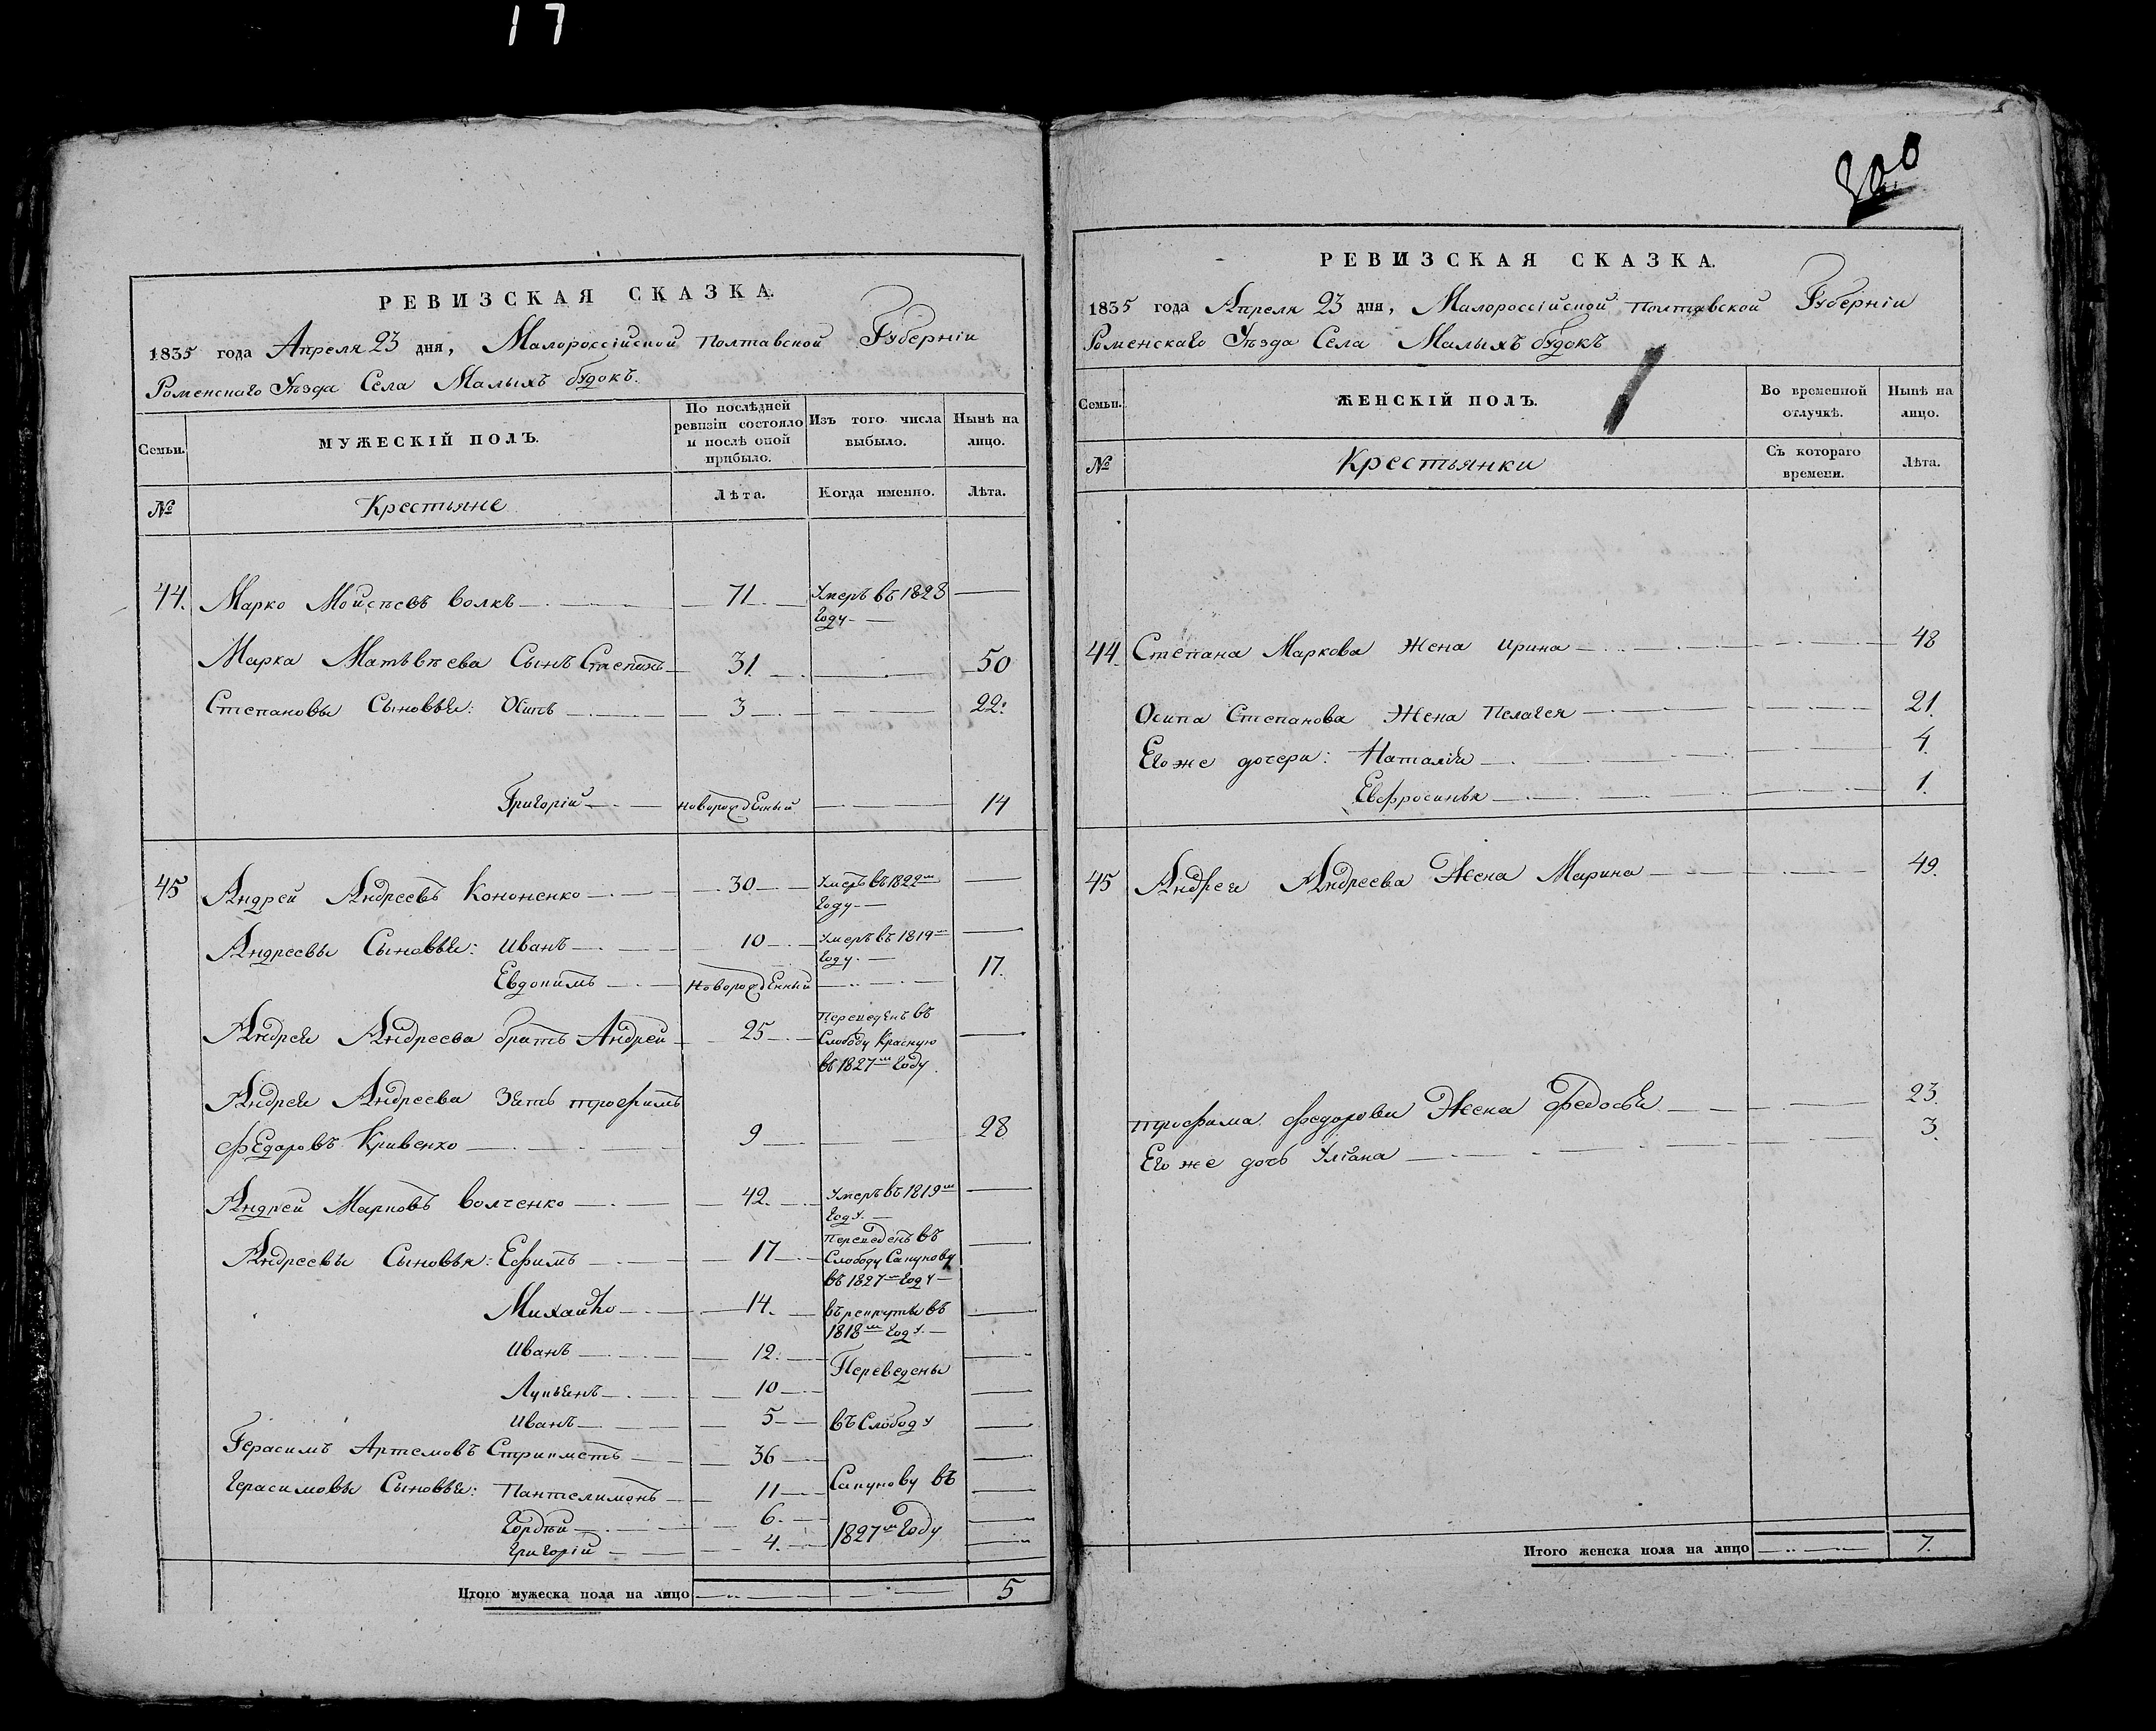 17
РЕВИЗСКАЯ СКАЗКА.
1835 года Апреля 23 дня, Малороссійской Полтавской Губерніи
Роменскаго Уѣзда Села Малыхъ будокъ.
Семьи.
МУЖЕСКІЙ ПОЛЪ.
По послѣдней ревизіи состояло и послѣ оной прибыло.
Изъ того числа выбыло.
Нынѣ на лицо.
№
Крестьяне
Лѣта.
Когда именно.
Лѣта.
44. Марко Моисѣевъ Волкъ 71 Умеръ въ 1828
году
Марка Матвѣева Сынъ Степанъ 31. 50
Степановы Сыновья: Осипъ 3 22.
Григорій новорожденный 14
45 Андрей Андреевъ Кононенко 30 Умеръ въ 1822м
году
Андреевы Сыновья: Иванъ 10 Умеръ въ 1819
году.
Евдокимъ новорожденный 17.
Андрея Андреева братъ Андрей 25 Переведенъ въ
Слободу Красную
въ 1827м году
Андрея Андреева Зять Трофимъ
Федоровъ Кривенко 9 28
Андрей Марковъ Волченко 42. Умеръ въ 1819м
году.
Андреевы Сыновья: Ефимъ 17 Переведенъ въ
Слободу Сапунову
въ 1827м году
Михайло 14. въ рекруты въ
1818м году.
Иванъ 12. Переведены
Лукьянъ 10
Иванъ 5 въ Слободу
Герасимъ Артемовъ 36
Герасимовы Сыновья: Пантелимонъ 11 Сапунову въ
Гордѣй 6. 1827м году
Григорій 4.
Итого мужеска пола на лицо 5
300
РЕВИЗСКАЯ СКАЗКА.
1835 года Апреля 23 дня, Малороссійской Полтавской Губерніи
Роменскаго Уѣзда Села Малыхъ будокъ
Семьи.
ЖЕНСКІЙ ПОЛЪ.
Во временной отлучкѣ.
Нынѣ на лицо.
№
Крестьянки
Съ котораго времени.
Лѣта.
44. Степана Маркова Жена Ирина 48
Осипа Степанова Жена Пелагея 21.
Его же дочери: Наталія 4.
Евфросинья 1.
45 Андрея Андреева Жена Марина 49.
Трофима Федорова Жена Федосья 23.
Его же дочь Уліана 3.
Итого женска пола на лицо 7.